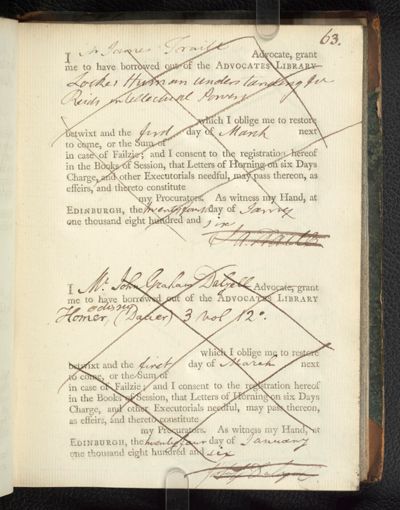 63.
I Mr James Traill Advocate, grant
me to have borrowed out of the ADVOCATES LIBRARY
Lockes Human understanding &
Reids intellectual Powers
which I oblige me to restore
betwixt and the first day of March next
to come, or the Sum of
in case of Failzie; and I consent to the registration hereof
in the Books of Session, that Letters of Horning on six Days
Charge, and other Executorials needful, may pass thereon, as
effeirs, and thereto constitute
my Procurators. As witness my Hand, at
EDINBURGH, the twenty four day of Janry
one thousand eight hundred and six
I Mr. John Graham Dalyell Advocate, grant
me to have borrowed out of the ADVOCATES LIBRARY
Homer odissey (Dacier) 3 vol 12o.
which I oblige me to restore
betwixt and the first day of March next
to come, or the Sum of
in case of Failzie; and I consent to the registration hereof
in the Books of Session, that Letters of Horning on six Days
Charge, and other Executorials needful, may pass thereon,
as effeirs, and thereto constitute
my Procurators. As witness my Hand, at
EDINBURGH, the twenty four day of January
one thousand eight hundred and six